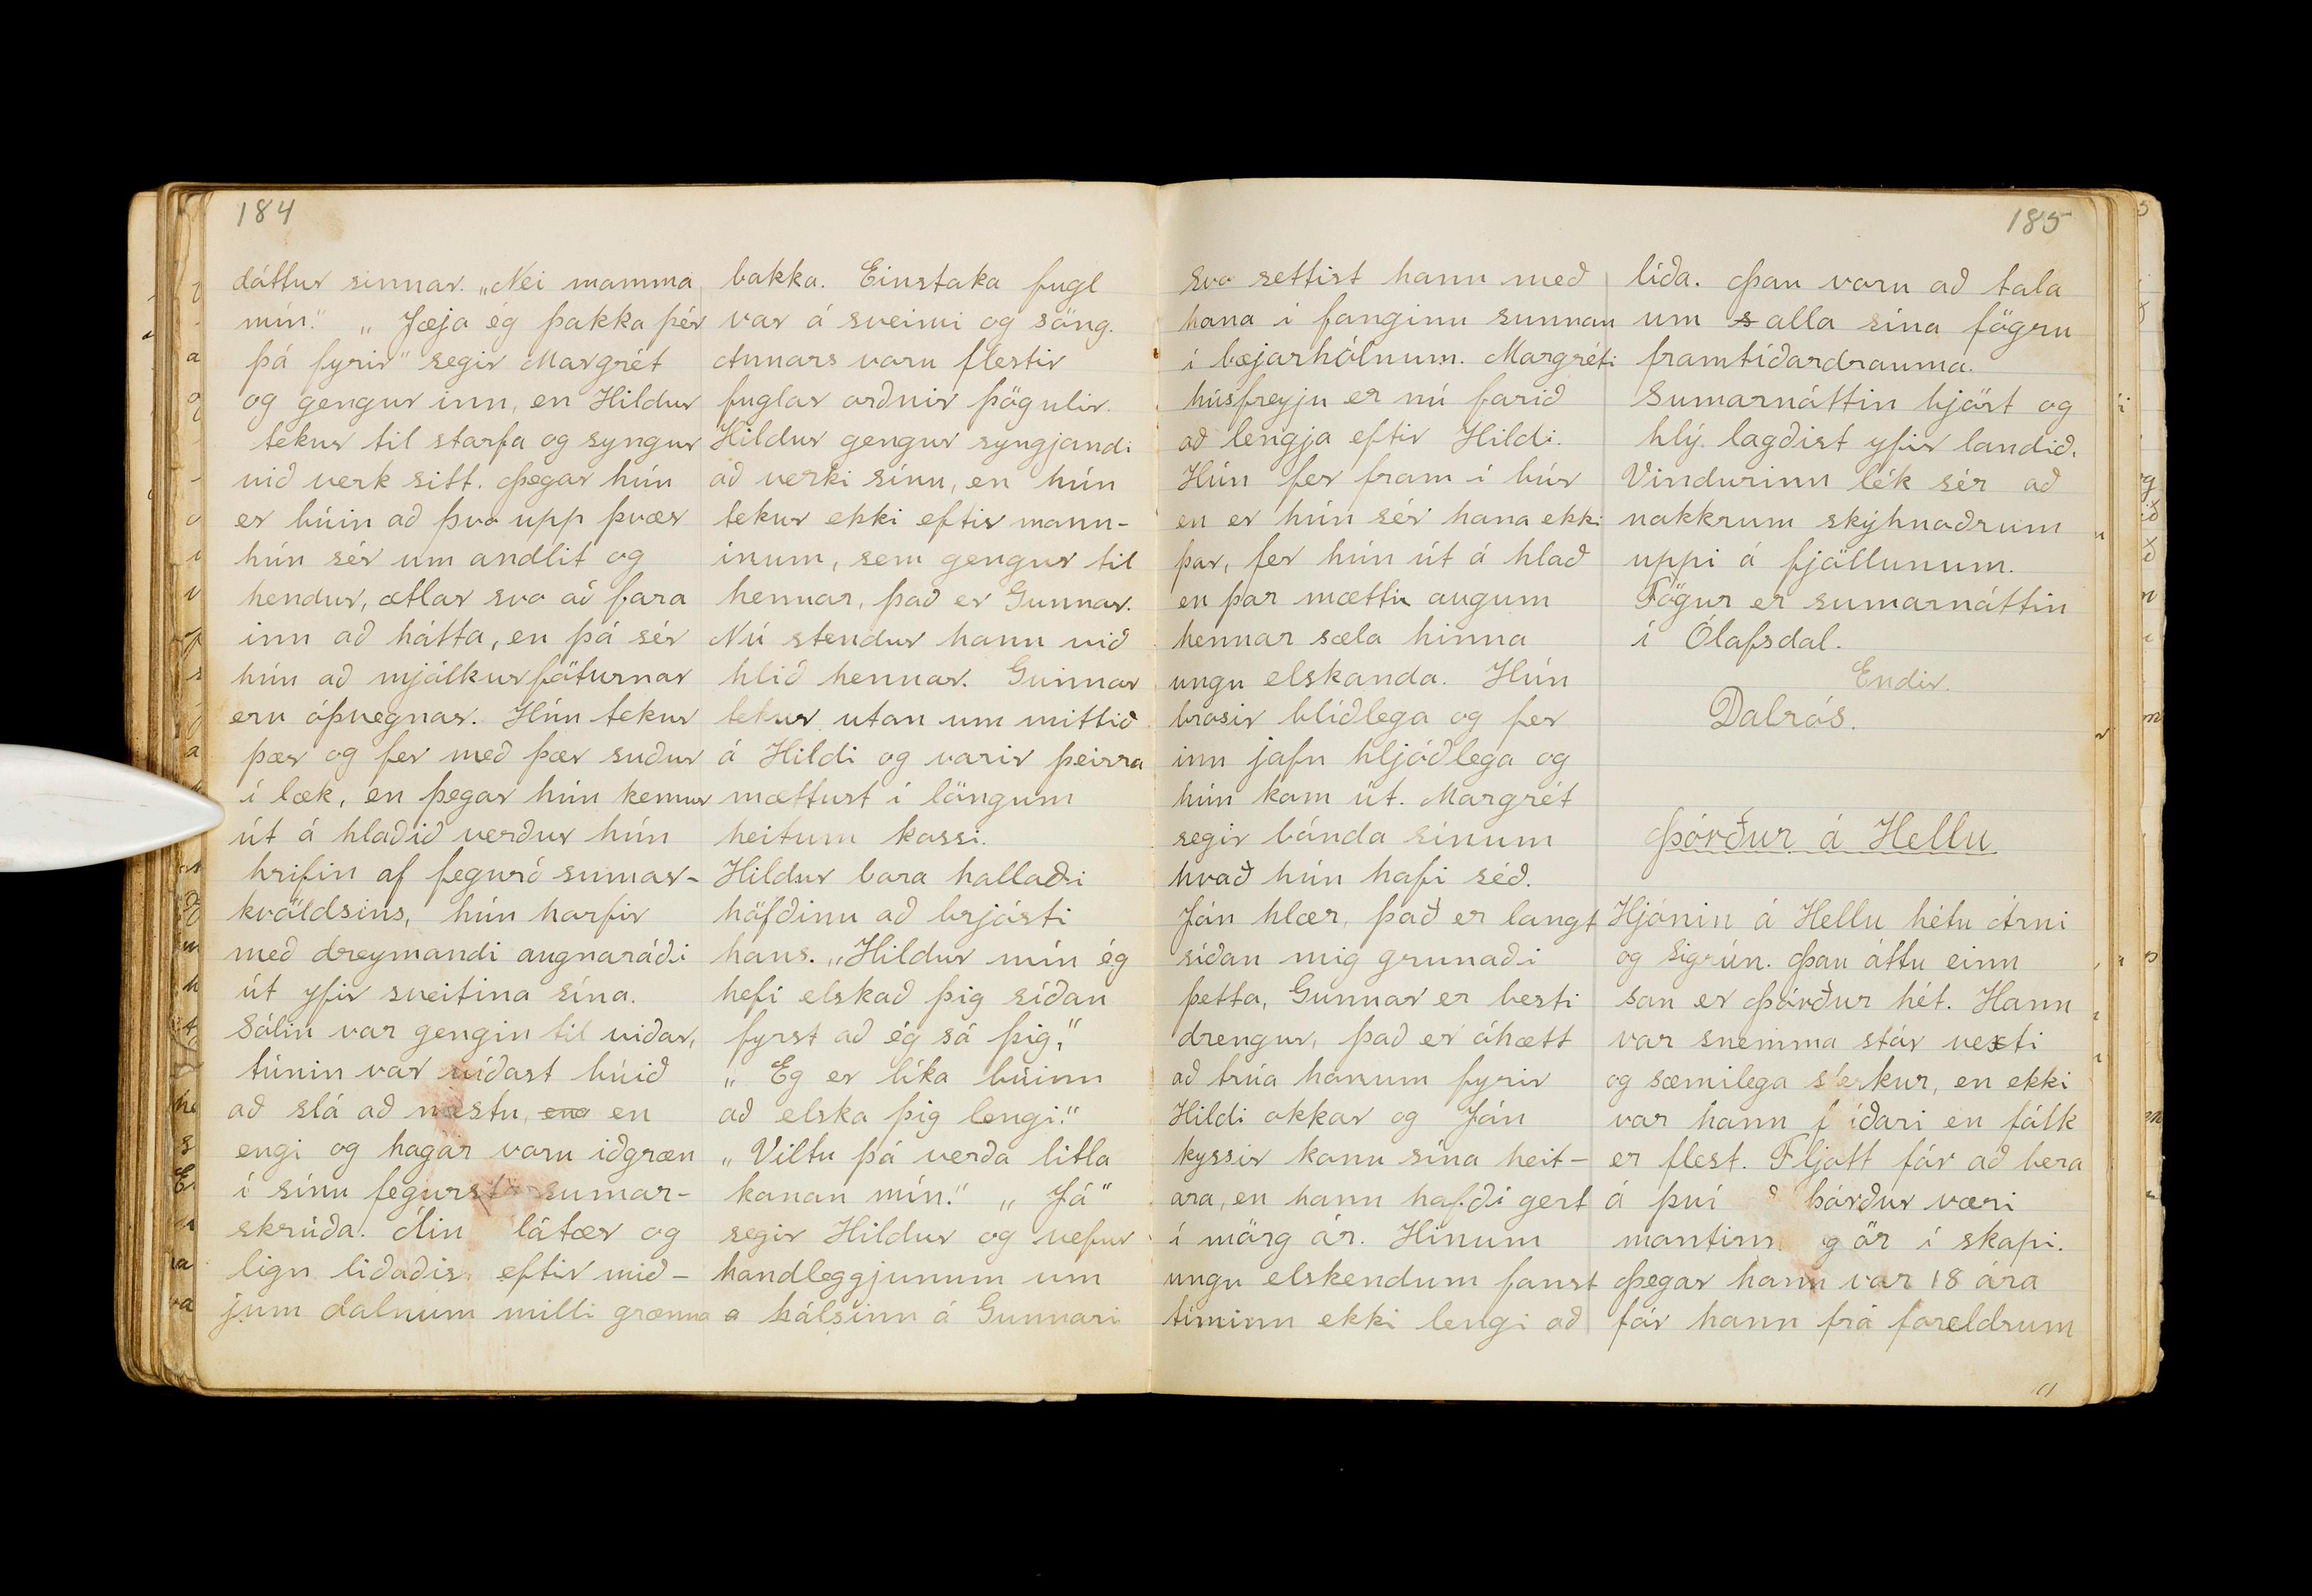 184
dóttur sinnar. „Nei mamma
mín." „Jæja ég þakka þér
þá fyrir" segir Margrét
og gengur inn, en Hildur
tekur til starfa og syngur
við verk sitt. Þegar hún
er búin að þvo upp þvær
hún sér um andlit og
hendur, ætlar svo að fara
inn að hátta, en þá sér
hún að mjólkurföturnar
eru óþvegnar. Hún tekur
þær og fer með þær suður
í læk, en þegar hún kemur
út á hlaðið verður hún
hrifin af fegurð sumar-
kvöldsins, hún horfir
með dreymandi augnaráði
út yfir sveitina sína.
Sólin var gengin til viðar,
túnin var víðast búið
að slá að mestu, ena en
engi og hagar voru iðgræn
í sínu fegursta sumar-
skrúða. Áin látær og
lign liðaðis eftir mið-
jum dalnum milli grænna
bakka. Einstaka fugl
var á sveimi og söng.
Annars voru flestir
fuglar orðnir þögulir.
Hildur gengur syngjandi
að verki sínu, en hún
tekur ekki eftir mann-
inum, sem gengur til
hennar, það er Gunnar.
Nú stendur hann við
hlið hennar. Gunnar
tekur utan um mittið
á Hildi og varir þeirra
mættust í löngum
heitum kossi.
Hildur bara hallaði
höfðinu að brjósti
hans. „Hildur mín ég
hefi elskað þig síðan
fyrst að ég sá þig."
„Eg er líka búinn
að elska þig lengi."
„Viltu þá verða litla
konan mín." „Já"
segir Hildur og vefur
handleggjunum um
a hálsinn á Gunnari
185
svo settist hann með
hana í fanginu sunnan
í bæjarhólnum. Margréti
húsfreyju er nú farið
að lengja eftir Hildi.
Hún fer fram í búr
en er hún sér hana ekki
þar, fer hún út á hlað
en þar mættu augum
hennar sæla hinna
ungu elskanda. Hún
brosir blíðlega og fer
inn jafn hljóðlega og
hún kom út. Margrét
segir bónda sínum
hvað hún hafi séð.
Jón hlær, það er langt
síðan mig grunaði
þetta, Gunnar er besti
drengur, það er óhætt
að trúa honum fyrir
Hildi okkar og Jón
kyssir konu sína heit-
ara, en hann hafði gert
í mörg ár. Hinum
ungu elskendum fanst
tíminn ekki lengi að
líða. Þau voru að tala
um s alla sína fögru
framtíðardrauma.
Sumarnóttin björt og
hlý lagðist yfir landið.
Vindurinn lék sér að
nokkrum skýhnoðrum
uppi á fjöllunum.
Fögur er sumarnóttin
í Ólafsdal.
Endir.
Dalrós.
Þórður á Hellu
Hjónin á Hellu hétu Árni
og Sigrún. Þau áttu einn
son er Þórður hét. Hann
var snemma stór vexti
og sæmilega sterkur, en ekki
var hann f íðari en fólk
er flest. Fljott fór að bera
á því Þórður væri
montinn g ör í skapi.
Þegar hann var 18 ára
fór hann frá foreldrum